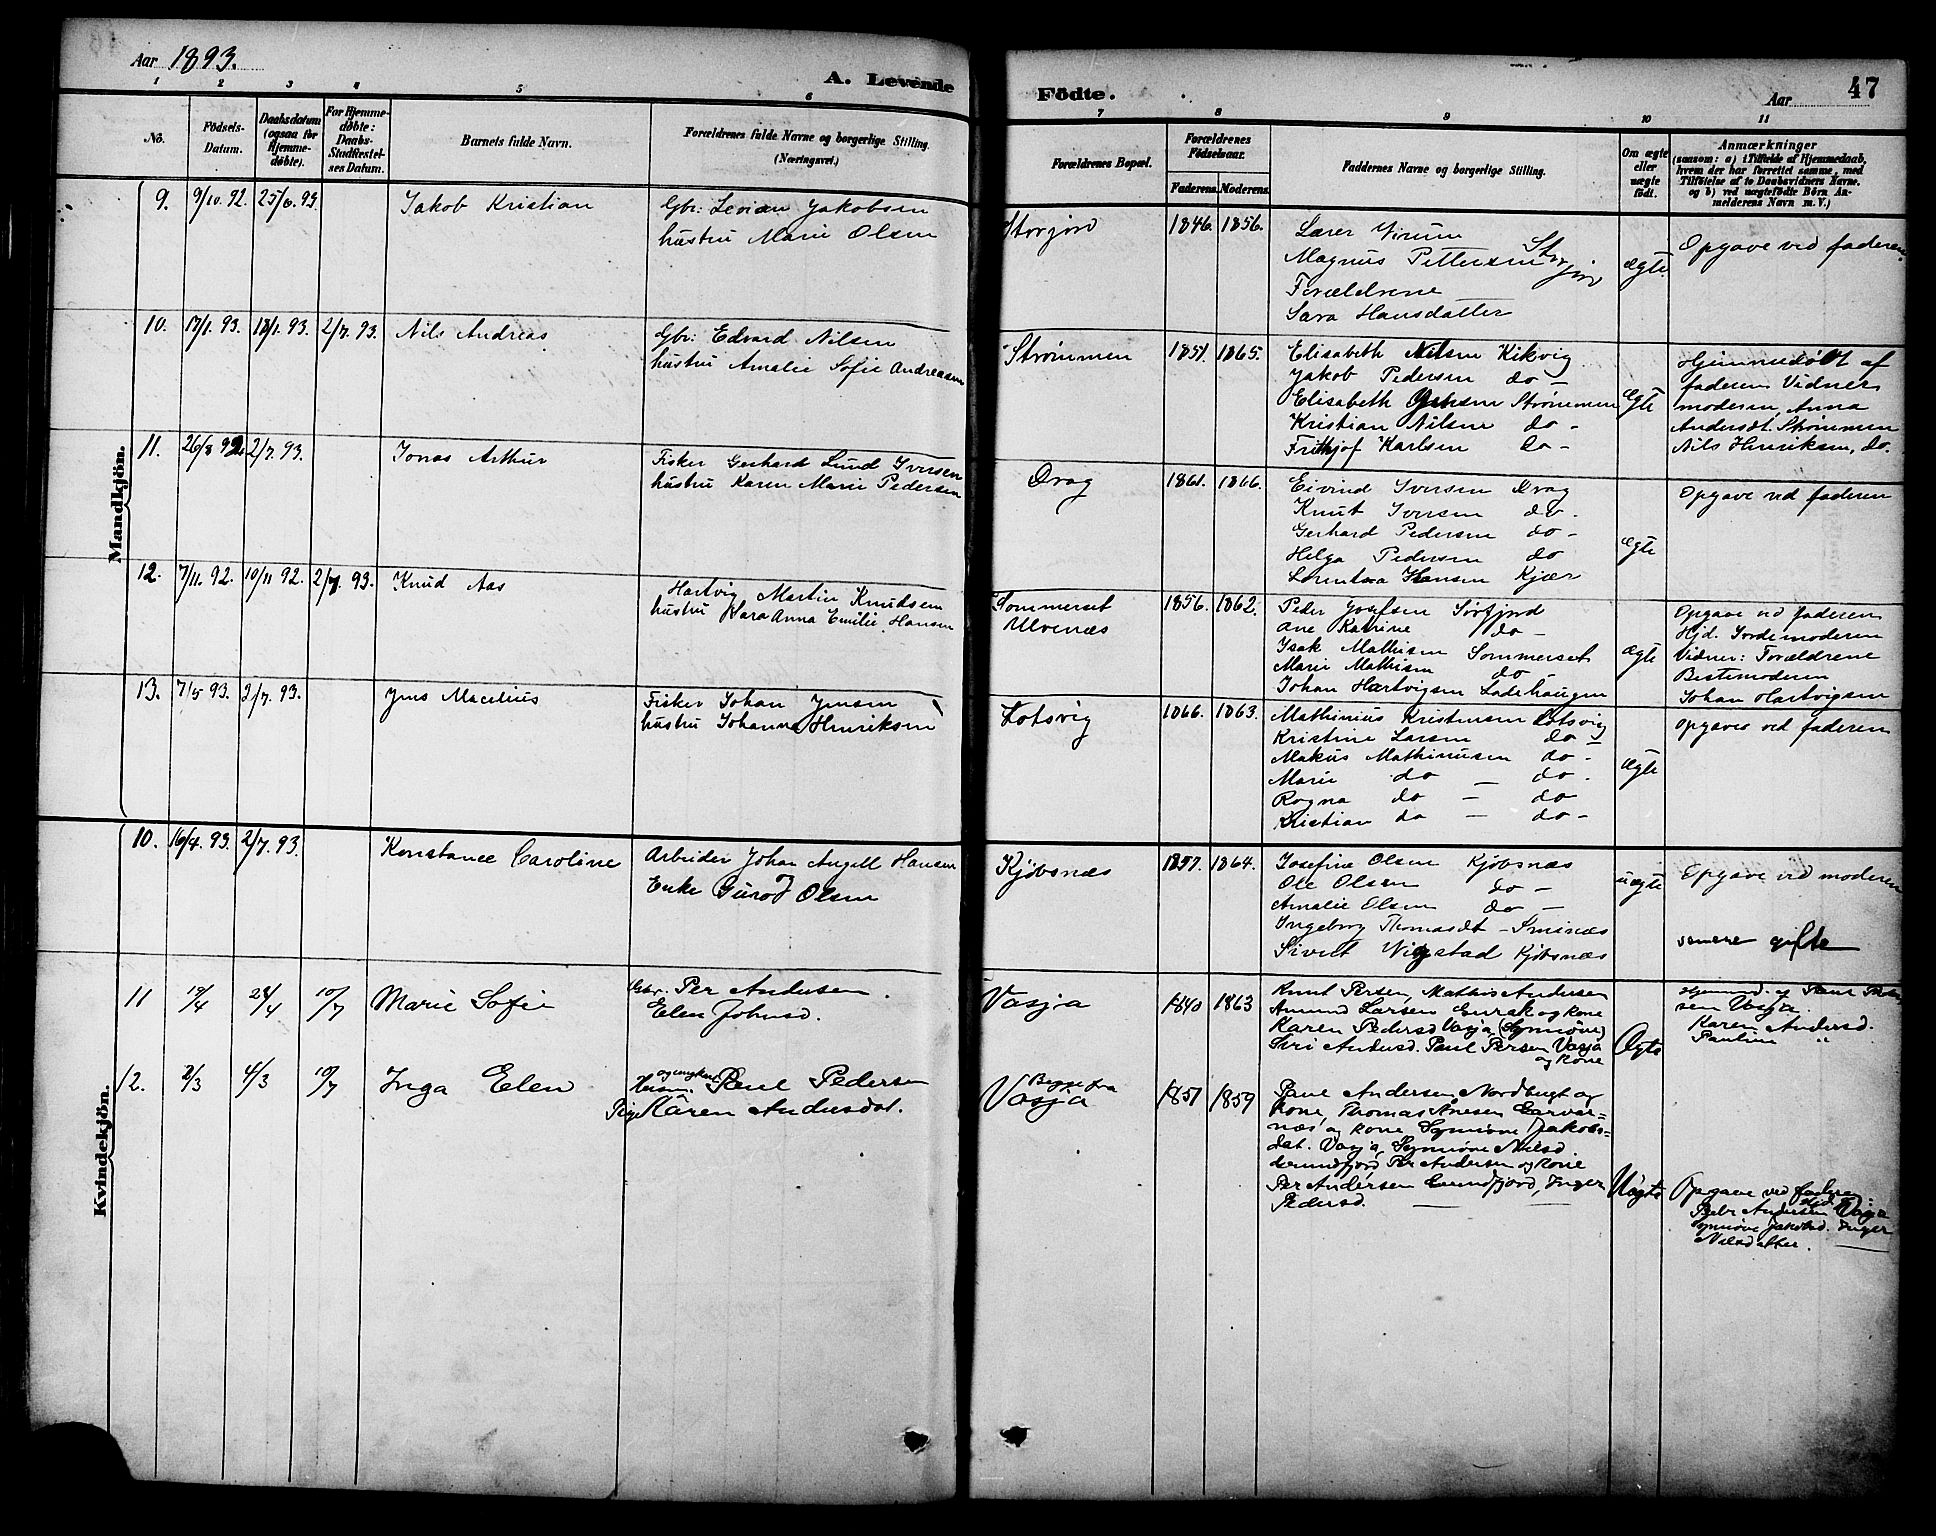 Aar 1893.
A. Levende Födte.
Aar 47
1 2 3 4 5 6 7 8 9 10 11
No.
Födsels-Datum.
Daabsdatum (ogsaa for Hjemme-døbte).
For Hjemme-døbte: Daabs-Stadfestel-ses Datum.
Barnets fulde Navn.
Forældrenes fulde Navne og borgerlige Stilling. (Næringsvei.)
Forældrenes Bopæl.
Forældrenes Födselsaar.
Faderens. Moderens.
Faddernes Navne og borgerlige Stilling.
Om ægte eller uægte født.
Anmærkninger
(saasom: a) i Tilfælde af Hjemmedaab, hvem der har forrettet samme, med Tilføielse af to Daabsvidners Navne, og b) ved uægtefødte Børn Anmelderens Navn m. V.)
Mandkjön.
9. 9/10. 92. 25/6. 93. Jakob Kristian
Gbr: Levian Jakobsen
hustru Marie Olsen
Storjord 1846. 1856.
Lærer Virum
Magnus Pettersen Storjord
Forældrene
Sara Hansdatter
ægte
Opgave ved faderen.
10. 17/1. 93. 18/1. 93. 2/7. 93. Nils Andreas
Gbr: Edvard Nilsen
hustru Amalie Sofie Andreasen
Strømmen 1851. 1865.
Elisabeth Nilsen Kikvig
Jakob Pedersen do -
Elisabeth Strømmen
Kristian Nilsen do -
Frithjof Karlsen do -
Ægte
Hjemmedøbt af
faderen Vidner
moderen, Anna
Andersdt. Strømmen
Nils Henriksen, do.
11. 26/8 92. 2/7. 93. Jonas Arthur
Fisker Gerhard Lund Iversen
hustru Karen Marie Pedersen
Drag 1861. 1866.
Eivind Iversen Drag
Knut Iversen do.
Gerhard Pedersen do -
Helga Pedersen do
Lorentsa Hansen Kjær
ægte
Opgave ved faderen
12. 7/11. 92. 10/11 92. 2/7. 93. Knud Aas
Hartvig Martin Knudsen
hustru Klara Anna Emilie Hansen
Sommerset
Ulvenæs
1856. 1862.
Peder Josefsen Sørfjord
Ane Katrine do -
Isak Mathisen Sommerset
Marie Mathisen do -
Johan Hartvigsen Ladehaugen
ægte
Opgave ved faderen
Hjd. Jordemoderen
Vidner: Forældrene
Bestemoderen
Johan Hartvigsen
13. 7/5 93. 2/7. 93. Jens Macelius
Fisker Johan Jensen
hustru Johanna Henriksen
Kotsvig 1866. 1863.
Mathinius Kristensen Kotsvig
Kristine Larsen do -
Makus Mathinusen do -
Marie do - do -
Ragna do - do
Kristian do - do -
Ægte
opgaves ved faderen
Kvindekjön.
10. 16/4. 93. 2/7. 93. Konstance Caroline
Arbeider Johan Angell Hansen
og
Enke Gurod Olsen
Kjøbsnæs 1857. 1864.
Josefine Olsen Kjøbsnæs
Ole Olsen do -
Amalie Olsen do -
Ingeborg Thomasdt - Smines
Sivert Kjøbsnæs
uægte
Opgave ved moderen
senere gifte
11 /4 24/4 10/7 Marie Sofie
Gbr. Per Andersen.
Elen Johnsd.
Vasja 1840 1863
Knut Persen, Mathis Andersen
Amund Larsen og kone
Karen Pedersd Vasja (Synnøve)
Siri Andersd. Paul Persen Vasja
og kone
Ægte
Hjemmd. af Paul
sen Vasja.
Karen Andersd.
Pauline "
12. 2/3 4/3 10/7 Inga Elen
og ungkarl
Paul Pedersen
Pige Karen Andersdat.
Begge fra
Vasja
1851 1859
Paul Andersen, Nordbugt og
kone, Thomas
næs og kone Synnøve Jakobs=
dat. Vasja, Synnøve Nielsd
Per Andersen og kone
Per Andersen Grundfjord, Inger
Pedersd.
Uægte
Opgave ved faderen
Hjd.
Peder Andersen Vasja
Synnøve Jakobsd. Inger
Nilsdatter.